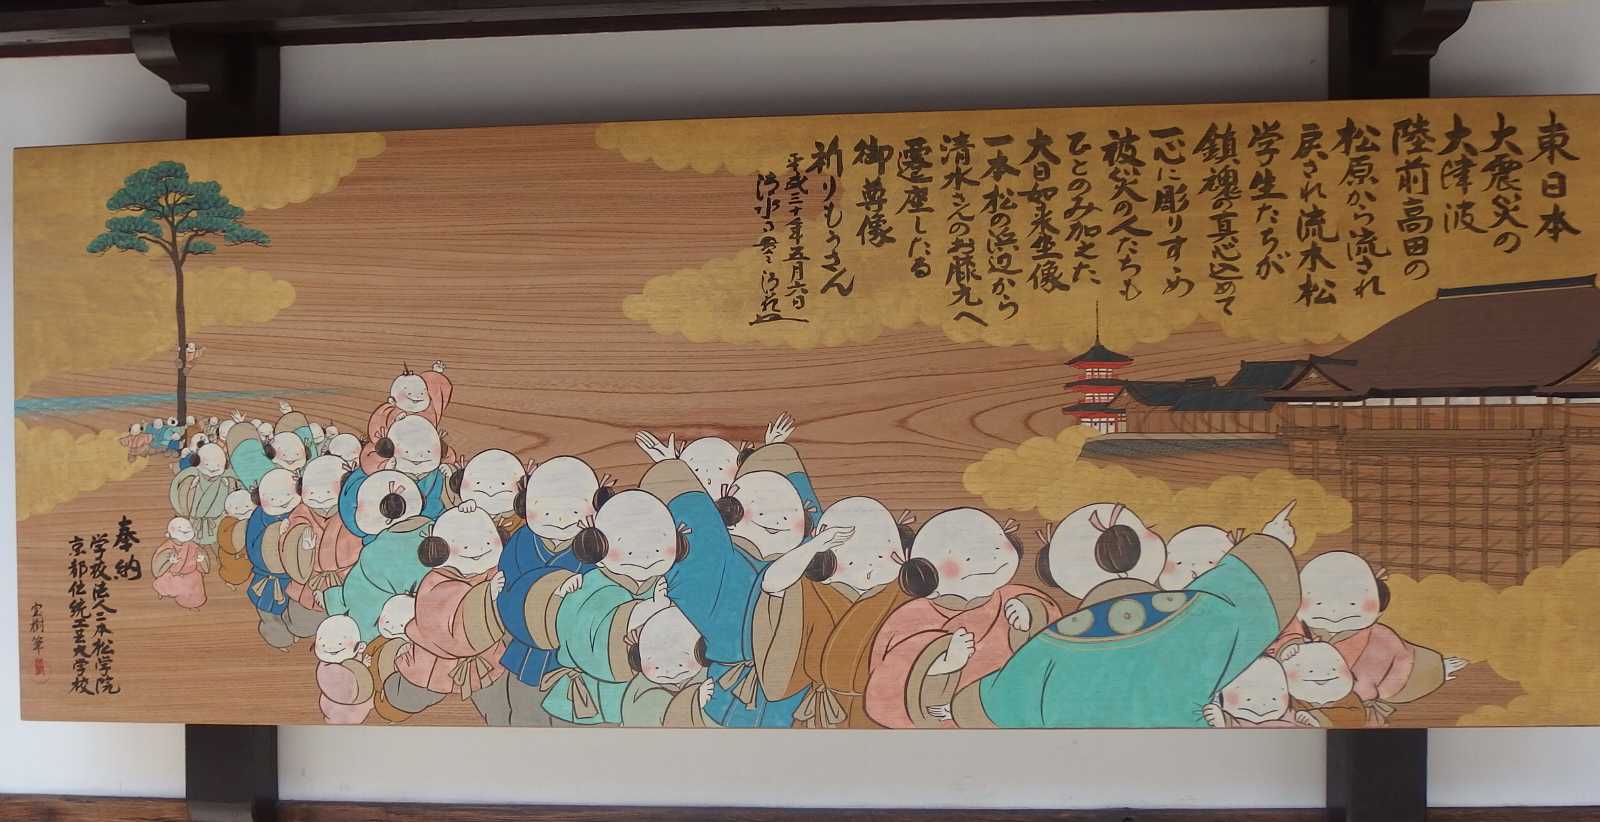 東日本
大震災の
大津波
陸前高田の
松原から流され
戻され流木松
学生たちが
鎮魂の真心込めて
一心に彫りすゝめ
被災の人たちも
ひとのみ加えた
大日如来坐像
一本松の浜辺から
清水さんのお膝元へ
遷座したる
御尊像
祈りもうさん
平成三十年五月六日
清水寺
奉納
学校法人二本松学院
京都伝統工芸大学校
宝樹筆